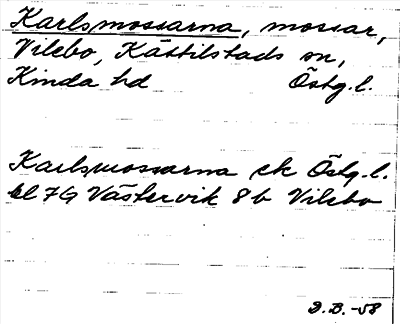 Karlsmossarna, mossar,
Vilebo, Kättilstads sn,
Kinda hd Östg.l.
Karlsmossarna ek Östg.l.
bl 7G Västervik 8b Vilebo
D.B.-58